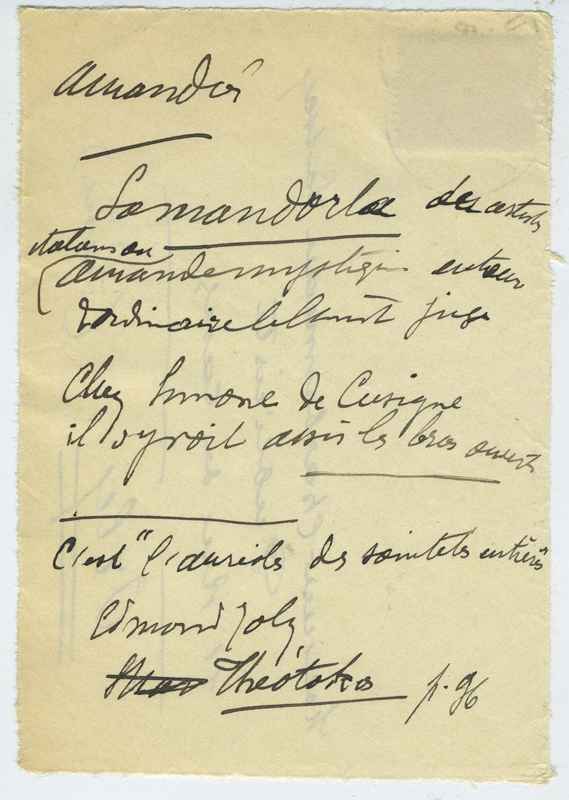 Amandor
La mandorla des artists
italiens ou
amande mystique entoure
d'ordinaire le Christ juge
Chez Simone de Cusigne
il s'y voit assis les bras ouverts
C'est "l'auréole des saintetés entières"
Edmond Joly
Théotokos p. 96